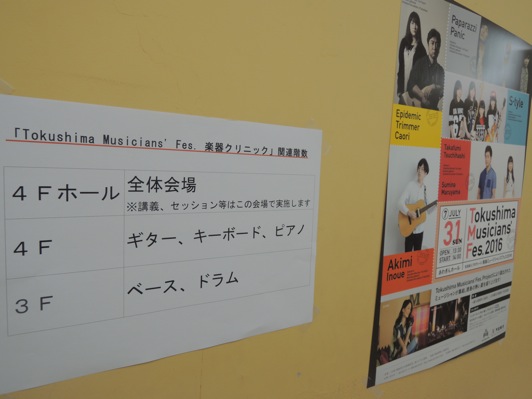 「Tokushima Musicians' Fes. 楽器クリニック」関連階数
4Fホール 全体会場
※講義、セッション等はこの会場で実施します
4F ギター、キーボード、ピアノ
3F ベース、ドラム
Paparazzi
Panic
Epidemic
Trimmer
Caori
S-tyle
Takafumi
Tsuchihashi
Sumire
Maruyama
7 JULY
31 SUN
Tokushima
Musicians'
Fes.2016
Akimi
Inoue